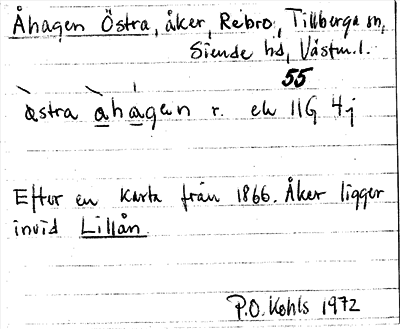 Åhagen Östra, åker, Rebro, Tillberga sn,
Siende hd, Västm.l.
55
östra åhagen r. ek 11G 4j
Efter en karta från 1866. Åker ligger
invid Lillån.
P.O. Kohls 1972